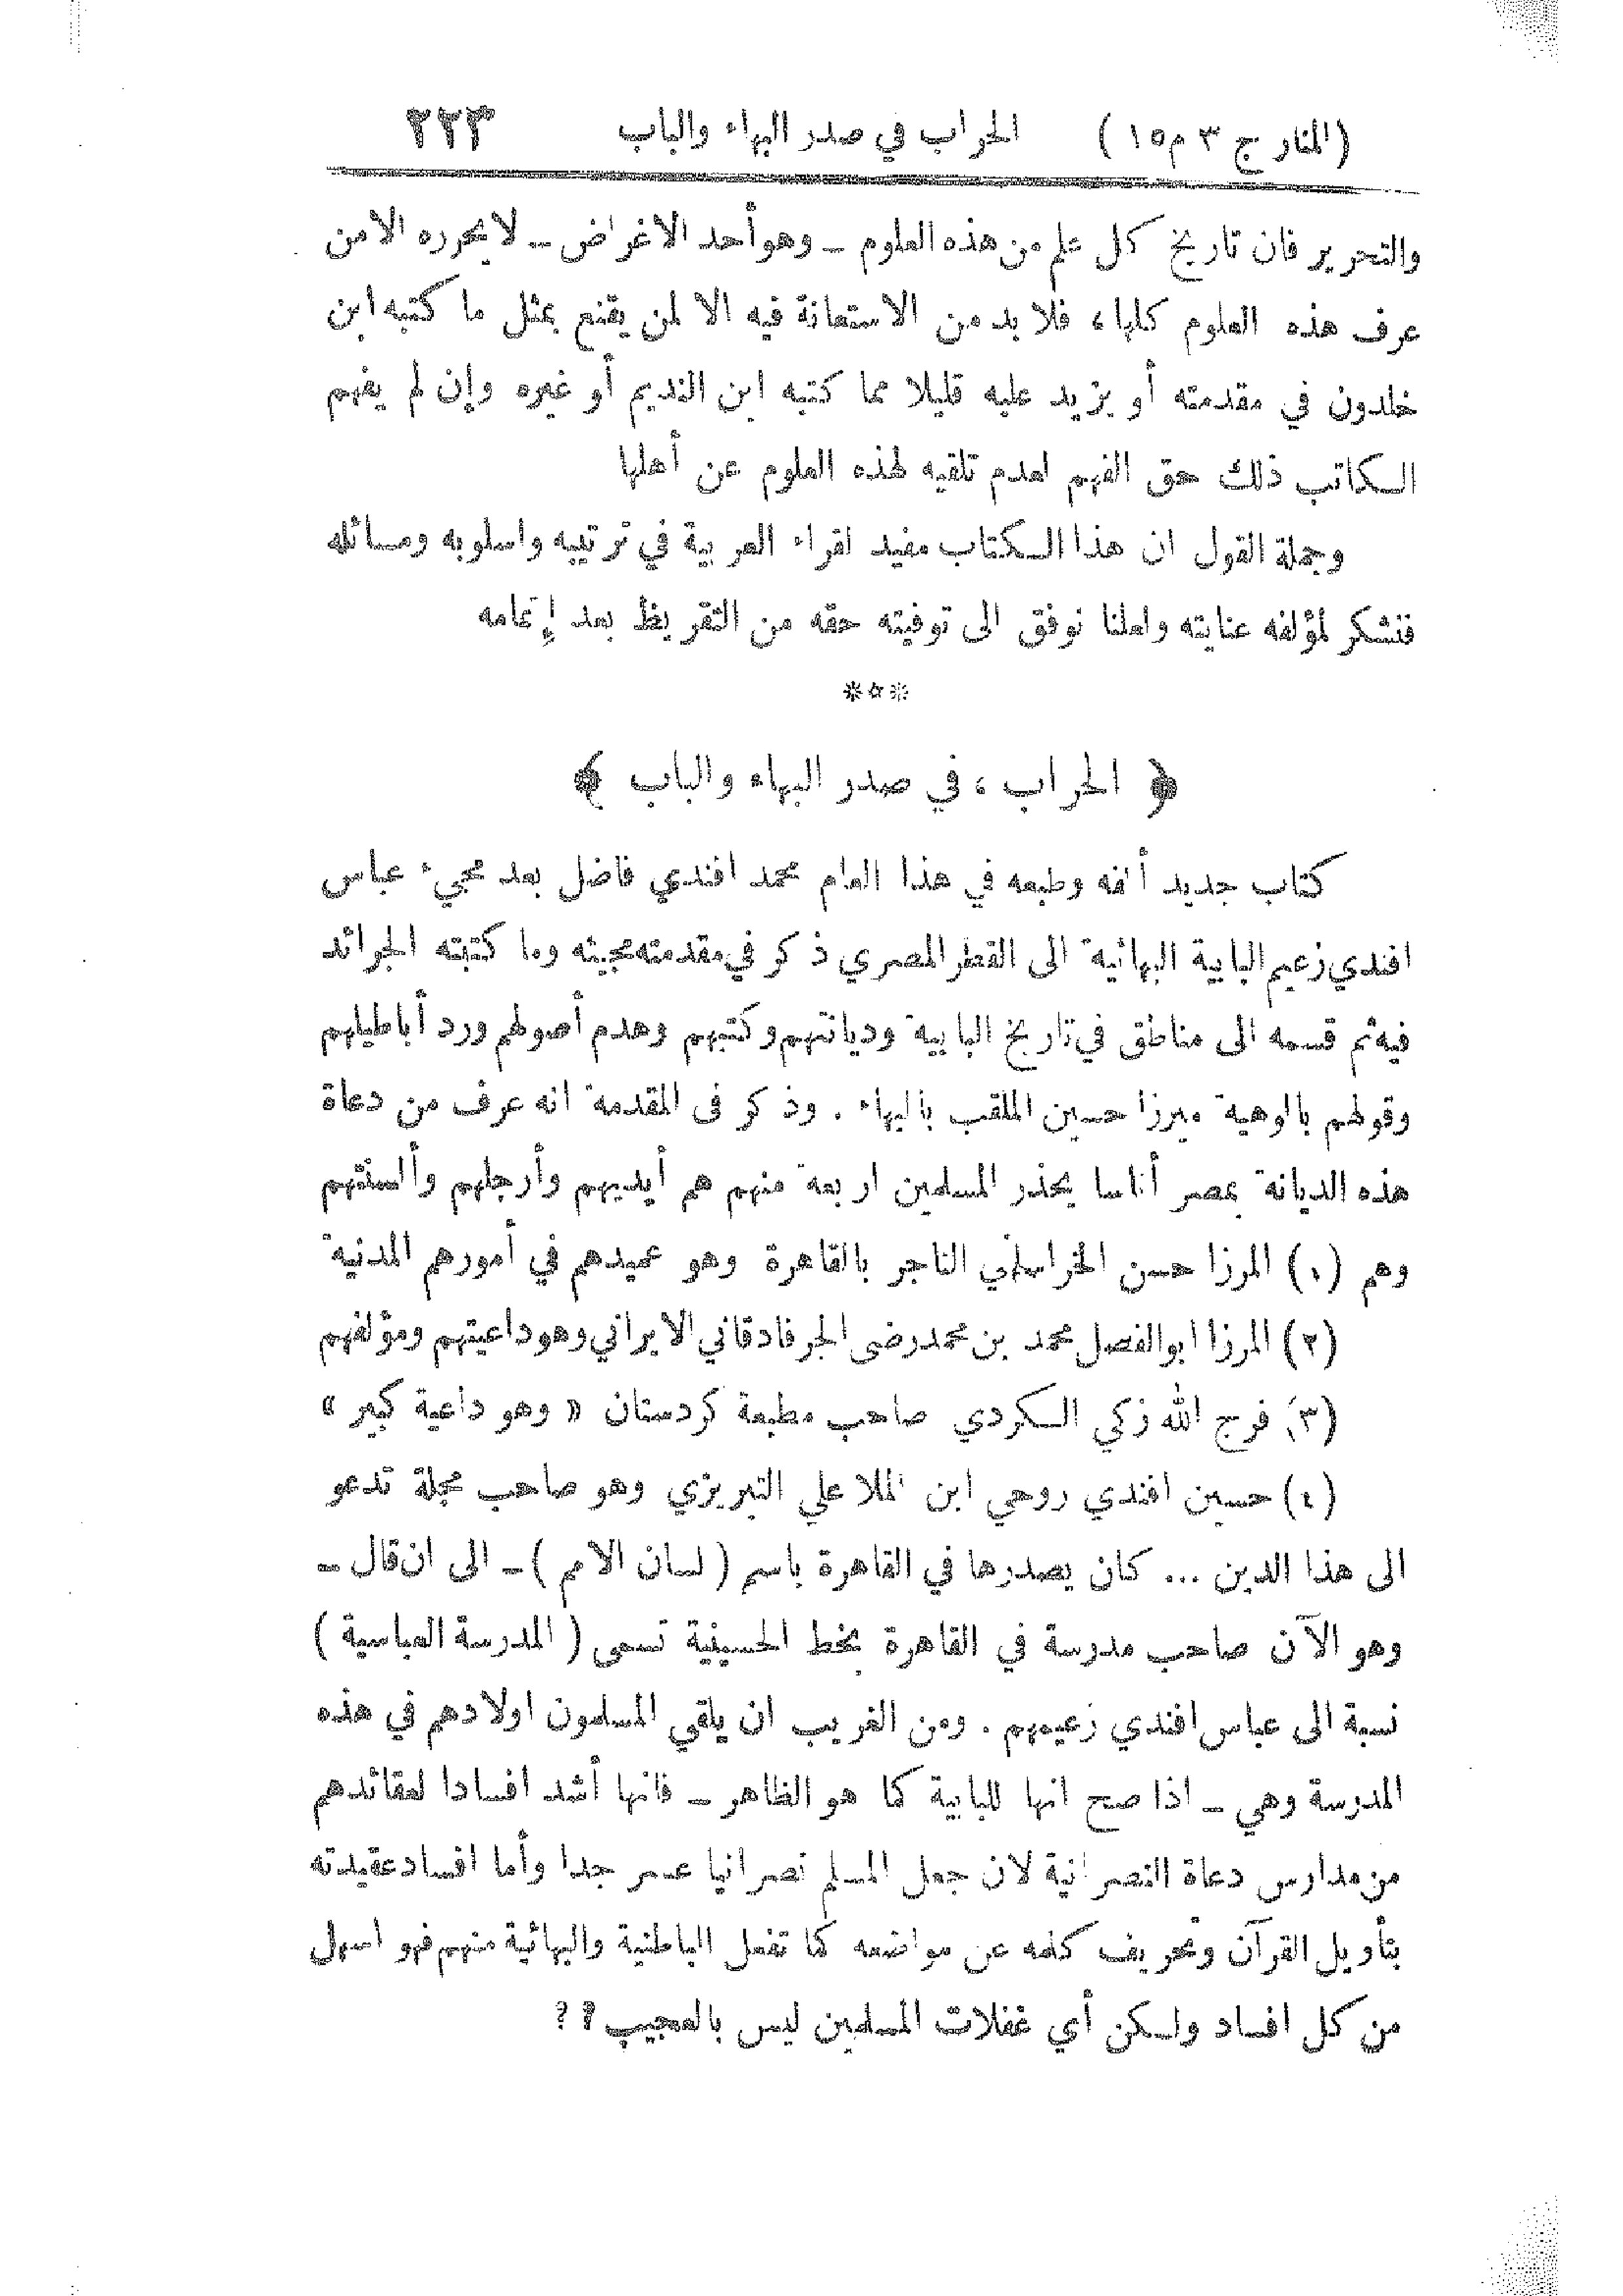 (المنار ج ٣ م ١٥) الحراب في صدر البهاء والباب ٢٢٣
والتحرير فان تاريخ كل علم من هذه العلوم ـ وهو أحد الاغراض ـ لا يحرره الا من
عرف هذه العلوم كلها، فلا بد من الاستعانة فيه الا لمن يقنع بمثل ما كتبه ابن
خلدون في مقدمته أو يزيد عليه قليلا مما كتبه ابن النديم أو غيره وإن لم يفهم
الكاتب ذلك حق الفهم لعدم تلقيه لهذه العلوم عن أهلها
وجملة القول ان هذا الكتاب مفيد لقراء العربية في ترتيبه واسلوبه ومسائله
فنشكر لمؤلفه عنايته ولعلنا نوفق الى توفيته حقه من التقريظ بعد إتمامه
***
﴿ الحراب ، في صدر البهاء والباب ﴾
كتاب جديد ألفه وطبعه في هذا العام محمد افندي فاضل بعد مجيء عباس
افندي زعيم البابية البهائية الى القطر المصري ذكر في مقدمته مجيئه وما كتبته الجرائد
فيه ثم قسمه الى مناطق في تاريخ البابية وديانتهم وكتبهم وهدم أصولهم ورد أباطيلهم
وقولهم بالوهية ميرزا حسين الملقب بالبهاء . وذكر فى المقدمة انه عرف من دعاة
هذه الديانة بمصر أناسا يحذر المسلمين اربعة منهم هم أيديهم وأرجلهم وألسنتهم
وهم (١) المرزا حسن الخراساني التاجر بالقاهرة وهو عميدهم في أمورهم المدنية
(٢) المرزا ابو الفضل محمد بن محمد رضى الجرفادقاني الايراني وهو داعيتهم ومؤلفهم
(٣) فرج الله زكي الكردي صاحب مطبعة كردستان « وهو داعية كبير »
(٤) حسين افندي روحي ابن الملا علي التبريزي وهو صاحب مجلة تدعو
الى هذا الدين ... كان يصدرها في القاهرة باسم ( لسان الامم ) ـ الى ان قال ـ
وهو الآن صاحب مدرسة في القاهرة بخط الحسينية تسمى ( المدرسة العباسية )
نسبة الى عباس افندي زعيمهم . ومن الغريب ان يلقي المسلمون اولادهم في هذه
المدرسة وهي ـ اذا صح انها للبابية كما هو الظاهر ـ فانها أشد افسادا لعقائدهم
من مدارس دعاة النصرانية لان جعل المسلم نصرانيا عسر جدا وأما افساد عقيدته
بتأويل القرآن وتحريف كلمه عن مواضعه كما تفعل الباطنية والبهائية منهم فهو اسهل
من كل افساد ولكن أي غفلات المسلمين ليس بالعجيب؟؟